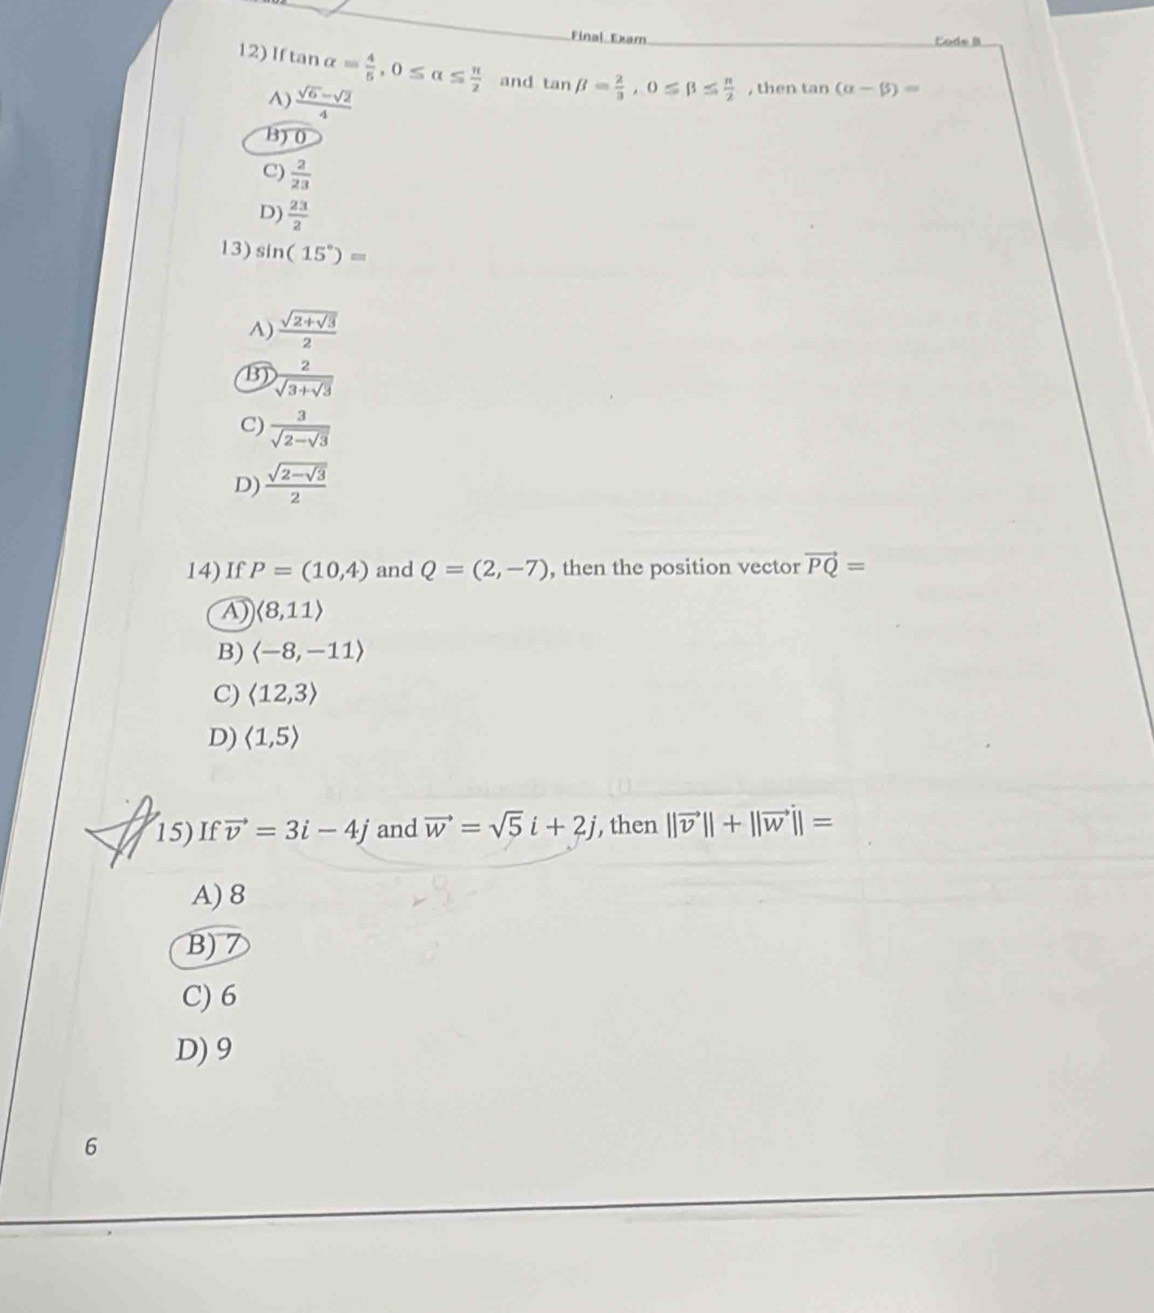 Final Exam
Code B
12) If tan α = 4/5, 0 ≤ α ≤ π/2 and tan β = 2/3, 0 ≤ β ≤ π/2, then tan (α − β) =
A) (√6 − √2)/4
B) 0
C) 2/23
D) 23/2
13) sin( 15°) =
A) √(2+√3)/2
B) 2/√(3+√3)
C) 3/√(2−√3)
D) √(2−√3)/2
14) If P = (10,4) and Q = (2, −7), then the position vector PQ⃗ =
A) ⟨8,11⟩
B) ⟨−8, −11⟩
C) ⟨12,3⟩
D) ⟨1,5⟩
15) If v⃗ = 3i − 4j and w⃗ = √5 i + 2j, then ||v⃗|| + ||w⃗|| =
A) 8
B) 7
C) 6
D) 9
6